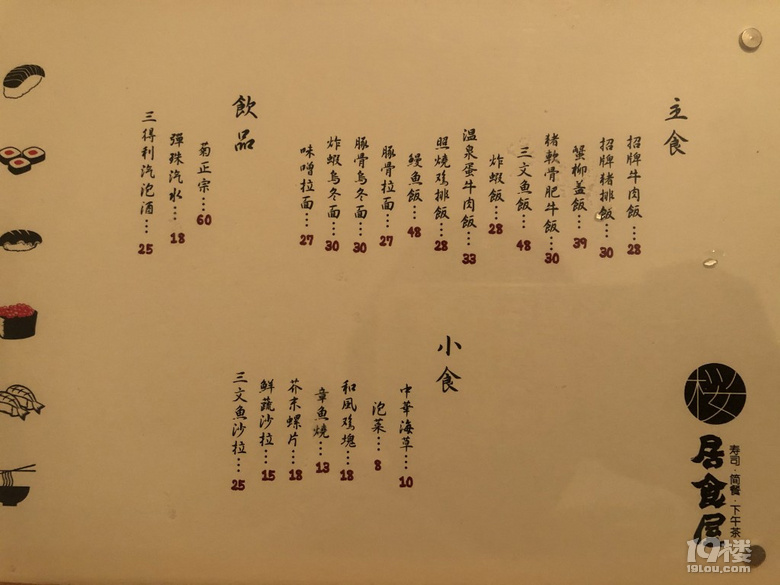 主食
招牌牛肉飯…28
招牌豬排飯…30
蟹柳盖飯…39
豬軟骨肥牛飯…30
三文魚飯…48
炸蝦飯…28
溫泉蛋牛肉飯…33
照燒鸡排飯…28
鰻魚飯…48
豚骨拉面…27
豚骨烏冬面…30
炸蝦烏冬面…30
味噌拉面…27
飲品
菊正宗…60
彈珠汽水…18
三得利汽泡酒…25
小食
中華海草…10
泡菜…8
和風鸡塊…18
章魚燒…13
芥末螺片…18
鮮蔬沙拉…15
三文魚沙拉…25
桜
居食屋
寿司·简餐·下午茶
19楼
19lou.com